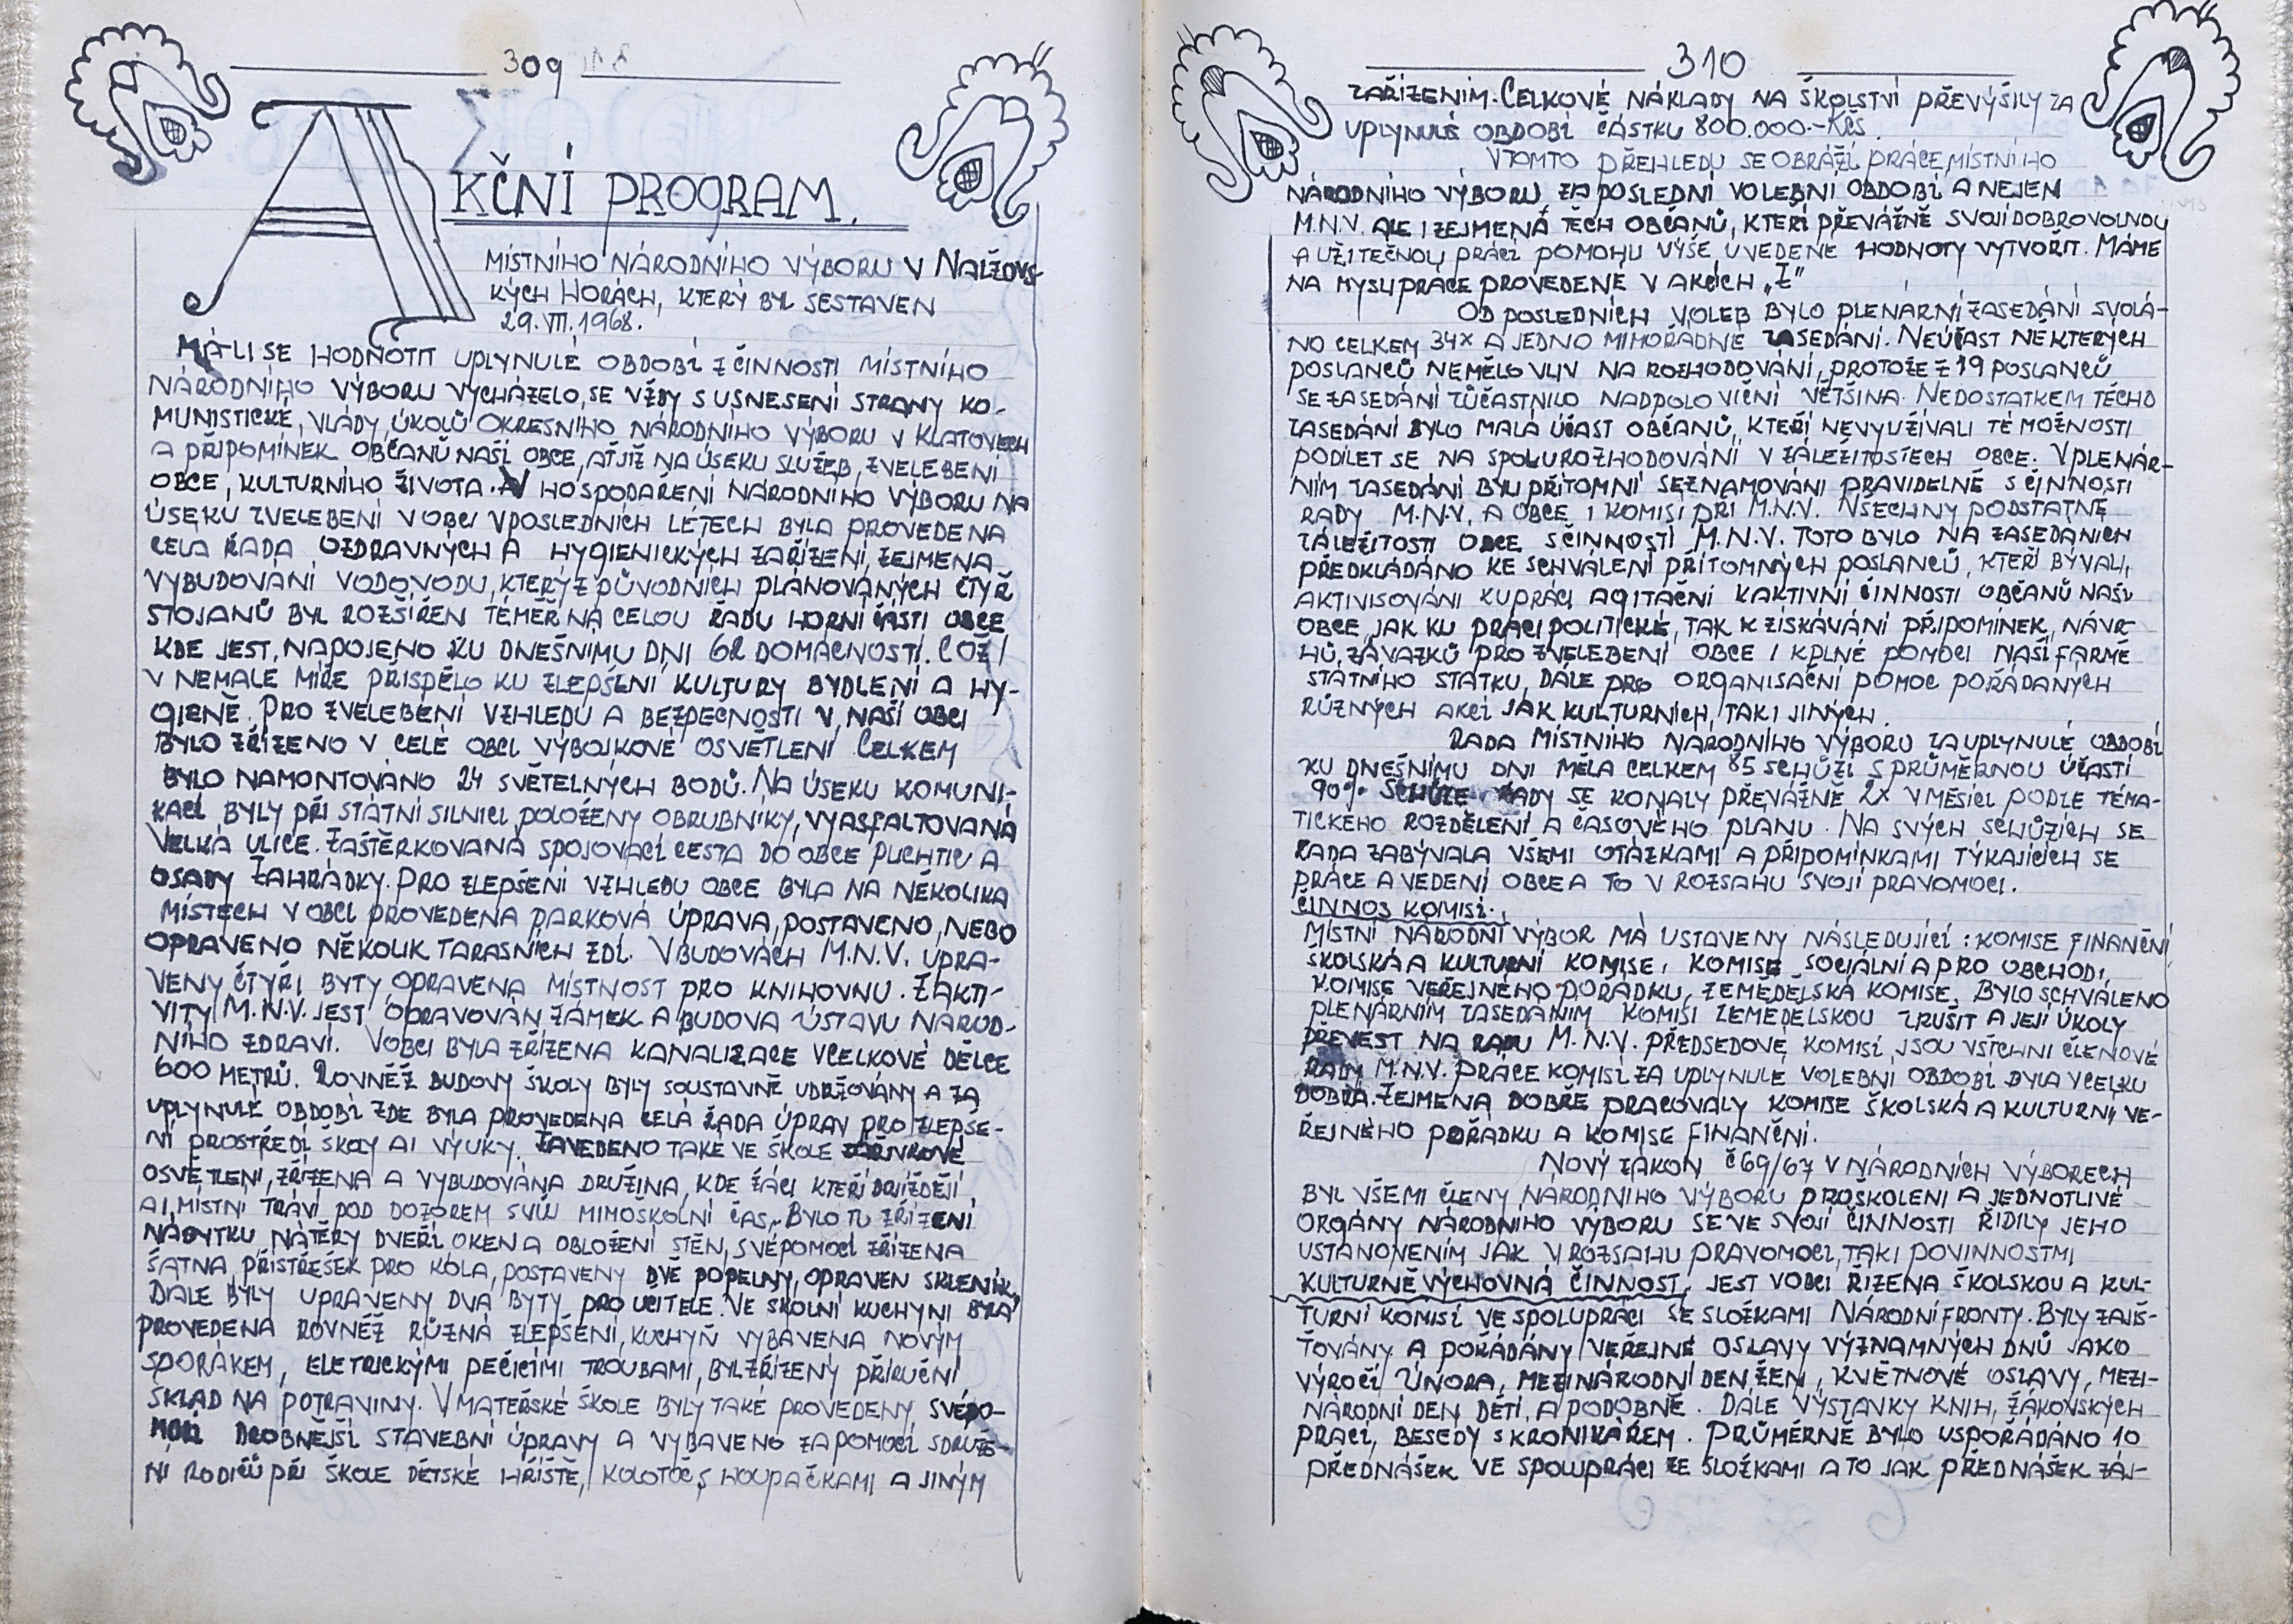 309
AKČNÍ PROGRAM.
MÍSTNÍHO NÁRODNÍHO VÝBORU V NALŽOVS-
KÝCH HORÁCH, KTERÝ BYL SESTAVEN
29. VII. 1968.
MÁ-LI SE HODNOTIT UPLYNULÉ OBDOBÍ Z ČINNOSTI MÍSTNÍHO
NÁRODNÍHO VÝBORU VYCHÁZELO, SE VŽDY S USNESENÍ STRANY KO-
MUNISTICKÉ, VLÁDY, ÚKOLŮ OKRESNÍHO NÁRODNÍHO VÝBORU V KLATOVECH
A PŘIPOMÍNEK OBČANŮ NAŠÍ OBCE, AŤ JIŽ NA ÚSEKU SLUŽEB, ZVELEBENÍ
OBCE, KULTURNÍHO ŽIVOTA. V HOSPODAŘENÍ NÁRODNÍHO VÝBORU NA
ÚSEKU ZVELEBENÍ V OBCI V POSLEDNÍCH LÉTECH BYLA PROVEDENA
CELÁ ŘADA OZDRAVNÝCH A HYGIENICKÝCH ZAŘÍZENÍ, ZEJMENA
VYBUDOVÁNÍ VODOVODU, KTERÝ Z PŮVODNÍCH PLÁNOVANÝCH ČTYŘ
STOJANŮ BYL ROZŠÍŘEN TÉMĚŘ NA CELOU ŘADU HORNÍ ČÁSTI OBCE
KDE JEST, NAPOJENO KU DNEŠNÍMU DNI 62 DOMÁCNOSTÍ. COŽ I
V NEMALÉ MÍŘE PŘISPĚLO KU ZLEPŠENÍ KULTURY BYDLENÍ A HY-
GIENĚ. PRO ZVELEBENÍ VZHLEDU A BEZPEČNOSTI V NAŠÍ OBCI
BYLO ZŘÍZENO V CELÉ OBCI VÝBOJKOVÉ OSVĚTLENÍ CELKEM
BYLO NAMONTOVÁNO 24 SVĚTELNÝCH BODŮ. NA ÚSEKU KOMUNI-
KACÍ BYLY PŘI STÁTNÍ SILNICI POLOŽENY OBRUBNÍKY, VYASFALTOVANÁ
VELKÁ ULICE. ZAŠTĚRKOVANÁ SPOJOVACÍ CESTA DO OBCE PLICHTIC A
OSADY ZAHRÁDKY. PRO ZLEPŠENÍ VZHLEDU OBCE BYLA NA NĚKOLIKA
MÍSTECH V OBCI PROVEDENA PARKOVÁ ÚPRAVA, POSTAVENO, NEBO
OPRAVENO NĚKOLIK TARASNÍCH ZDÍ. V BUDOVÁCH M.N.V. ÚPRA-
VENY ČTYŘI BYTY, OPRAVENA MÍSTNOST PRO KNIHOVNU. Z AKTI-
VITY M.N.V. JEST OPRAVOVÁN ZÁMEK A BUDOVA ÚSTAVU NÁROD-
NÍHO ZDRAVÍ. V OBCI BYLA ZŘÍZENA KANALIZACE V CELKOVÉ DÉLCE
600 METRŮ. ROVNĚŽ BUDOVY ŠKOLY BYLY SOUSTAVNĚ UDRŽOVÁNY A ZA
UPLYNULÉ OBDOBÍ ZDE BYLA PROVEDENA CELÁ ŘADA ÚPRAV PRO ZLEPŠE-
NÍ PROSTŘEDÍ ŠKOLY A I VÝUKY. ZAVEDENO TAKÉ VE ŠKOLE ZÁŘIVKOVÉ
OSVĚTLENÍ, ZŘÍZENA A VYBUDOVÁNA DRUŽINA, KDE ŽÁCI KTEŘÍ DOJÍŽDĚJÍ,
A I MÍSTNÍ TRÁVÍ POD DOZOREM SVŮJ MIMOŠKOLNÍ ČAS. BYLO TU ZŘÍZENÍ
NÁBYTKU NÁTĚRY DVEŘÍ OKEN A OBLOŽENÍ STĚN, SVÉPOMOCÍ ZŘÍZENA
ŠATNA, PŘÍSTŘEŠEK PRO KOLA, POSTAVENY DVĚ POPELNY, OPRAVEN SKLENÍK,
DÁLE BYLY UPRAVENY DVA BYTY PRO UČITELE. VE ŠKOLNÍ KUCHYNI BYLA
PROVEDENA ROVNĚŽ RŮZNÁ ZLEPŠENÍ, KUCHYŇ VYBAVENA NOVÝM
SPORÁKEM, ELETRICKÝMI PEČÍCÍMI TROUBAMI, BYL ZŘÍZENÝ PŘÍRUČNÍ
SKLAD NA POTRAVINY. V MATEŘSKÉ ŠKOLE BYLY TAKÉ PROVEDENY, SVÉPO-
MOCÍ DROBNĚJŠÍ STAVEBNÍ ÚPRAVY A VYBAVENO ZA POMOCI SDRUŽE-
NÍ RODIČŮ PŘI ŠKOLE DĚTSKÉ HŘIŠTĚ, KOLOTOČ S HOUPAČKAMI A JINÝM
310
ZAŘÍZENÍM. CELKOVÉ NÁKLADY NA ŠKOLSTVÍ PŘEVÝŠILY ZA
UPLYNULÉ OBDOBÍ ČÁSTKU 800.000.-KČS.
V TOMTO PŘEHLEDU SE OBRÁŽÍ PRÁCE MÍSTNÍHO
NÁRODNÍHO VÝBORU, ZA POSLEDNÍ VOLEBNÍ OBDOBÍ A NEJEN
M.N.V. ALE I ZEJMENÁ TĚCH OBČANŮ, KTEŘÍ PŘEVÁŽNĚ SVOJÍ DOBROVOLNOU
A UŽITEČNOU PRÁCÍ POMOHU VÝŠE UVEDENÉ HODNOTY VYTVOŘIT. MÁME
NA MYSLI PRÁCE PROVEDENÉ V AKCÍCH „Z"
OD POSLEDNÍCH VOLEB BYLO PLENÁRNÍ ZASEDÁNÍ SVOLÁ-
NO CELKEM 34X A JEDNO MIMOŘÁDNÉ ZASEDÁNÍ. NEÚČAST NĚKTERÝCH
POSLANCŮ NEMĚLO VLIV NA ROZHODOVÁNÍ, PROTOŽE Z 19 POSLANCŮ
SE ZASEDÁNÍ ZÚČASTNILO NADPOLOVIČNÍ VĚTŠINA. NEDOSTATKEM TĚCHO
ZASEDÁNÍ BYLO MALÁ ÚČAST OBČANŮ, KTEŘÍ NEVYUŽÍVALI TÉ MOŽNOSTI
PODÍLET SE NA SPOLUROZHODOVÁNÍ V ZÁLEŽITOSTECH OBCE. V PLENÁR-
NÍM ZASEDÁNÍ BYLI PŘÍTOMNÍ SEZNAMOVÁNI PRAVIDELNĚ S ČINNOSTÍ
RADY M.N.V. A OBCE I KOMISÍ PŘI M.N.V. VŠECHNY PODSTATNÉ
ZÁLEŽITOSTI OBCE S ČINNOSTÍ M.N.V. TOTO BYLO NA ZASEDÁNÍCH
PŘEDKLÁDÁNO KE SCHVÁLENÍ PŘÍTOMNÝCH POSLANCŮ, KTEŘÍ BÝVALI,
AKTIVISOVÁNI KU PRÁCI AGITAČNÍ K AKTIVNÍ ČINNOSTI OBČANŮ NAŠÍ
OBCE, JAK KU PRÁCI POLITICKÉ, TAK K ZÍSKÁVÁNÍ PŘIPOMÍNEK, NÁVR-
HŮ, ZÁVAZKŮ PRO ZVELEBENÍ OBCE I K PLNÉ POMOCI NAŠÍ FARMĚ
STÁTNÍHO STATKU, DÁLE PRO ORGANISAČNÍ POMOC POŘÁDANÝCH
RŮZNÝCH AKCÍ JAK KULTURNÍCH, TAK I JINÝCH.
RADA MÍSTNÍHO NÁRODNÍHO VÝBORU ZA UPLYNULÉ OBDOBÍ
KU DNEŠNÍMU DNI MĚLA CELKEM 85 SCHŮZÍ S PRŮMĚRNOU ÚČASTÍ
90% SCHŮZE RADY SE KONALY PŘEVÁŽNĚ 2X V MĚSÍCI PODLE TÉMA-
TICKÉHO ROZDĚLENÍ A ČASOVÉHO PLÁNU. NA SVÝCH SCHŮZÍCH SE
RADA ZABÝVALA VŠEMI OTÁZKAMI A PŘIPOMÍNKAMI TÝKAJÍCÍCH SE
PRÁCE A VEDENÍ OBCE A TO V ROZSAHU SVOJÍ PRAVOMOCI.
ČINNOS KOMISÍ.
MÍSTNÍ NÁRODNÍ VÝBOR MÁ USTAVENY NÁSLEDUJÍCÍ: KOMISE FINANČNÍ,
ŠKOLSKÁ A KULTURNÍ KOMISE, KOMISE SOCIÁLNÍ A PRO OBCHOD,
KOMISE VEŘEJNÉHO POŘÁDKU, ZEMĚDĚLSKÁ KOMISE. BYLO SCHVÁLENO
PLENÁRNÍM ZASEDÁNÍM KOMISI ZEMĚDĚLSKOU ZRUŠIT A JEJÍ ÚKOLY
PŘEVÉST NA RADU M.N.V. PŘEDSEDOVÉ KOMISÍ JSOU VŠICHNI ČLENOVÉ
RADY M.N.V. PRÁCE KOMISÍ ZA UPLYNULÉ VOLEBNÍ OBDOBÍ BYLA VCELKU
DOBRÁ. ZEJMENA DOBŘE PRACOVALY KOMISE ŠKOLSKÁ A KULTURNÍ, VE-
ŘEJNÉHO POŘÁDKU A KOMISE FINANČNÍ.
NOVÝ ZÁKON Č 69/67 V NÁRODNÍCH VÝBORECH
BYL VŠEMI ČLENY NÁRODNÍHO VÝBORU PROŠKOLENI A JEDNOTLIVÉ
ORGÁNY NÁRODNÍHO VÝBORU SE VE SVOJÍ ČINNOSTI ŘÍDILY JEHO
USTANOVENÍM JAK V ROZSAHU PRAVOMOCI, TAK I POVINNOSTMI,
KULTURNĚ VÝCHOVNÁ ČINNOST, JEST V OBCI ŘÍZENA ŠKOLSKOU A KUL-
TURNÍ KOMISÍ VE SPOLUPRÁCI SE SLOŽKAMI NÁRODNÍ FRONTY. BYLY ZAJIŠ-
ŤOVÁNY A POŘÁDÁNY VEŘEJNÉ OSLAVY VÝZNAMNÝCH DNŮ JAKO
VÝROČÍ ÚNORA, MEZINÁRODNÍ DEN ŽEN, KVĚTNOVÉ OSLAVY, MEZI-
NÁRODNÍ DEN DĚTÍ, A PODOBNĚ. DÁLE VÝSTAVKY KNIH, ŽÁKOVSKÝCH
PRACÍ, BESEDY S KRONIKÁŘEM. PRŮMĚRNĚ BYLO USPOŘÁDÁNO 10
PŘEDNÁŠEK VE SPOLUPRÁCI ZE SLOŽKAMI A TO JAK PŘEDNÁŠEK ZÁJ-